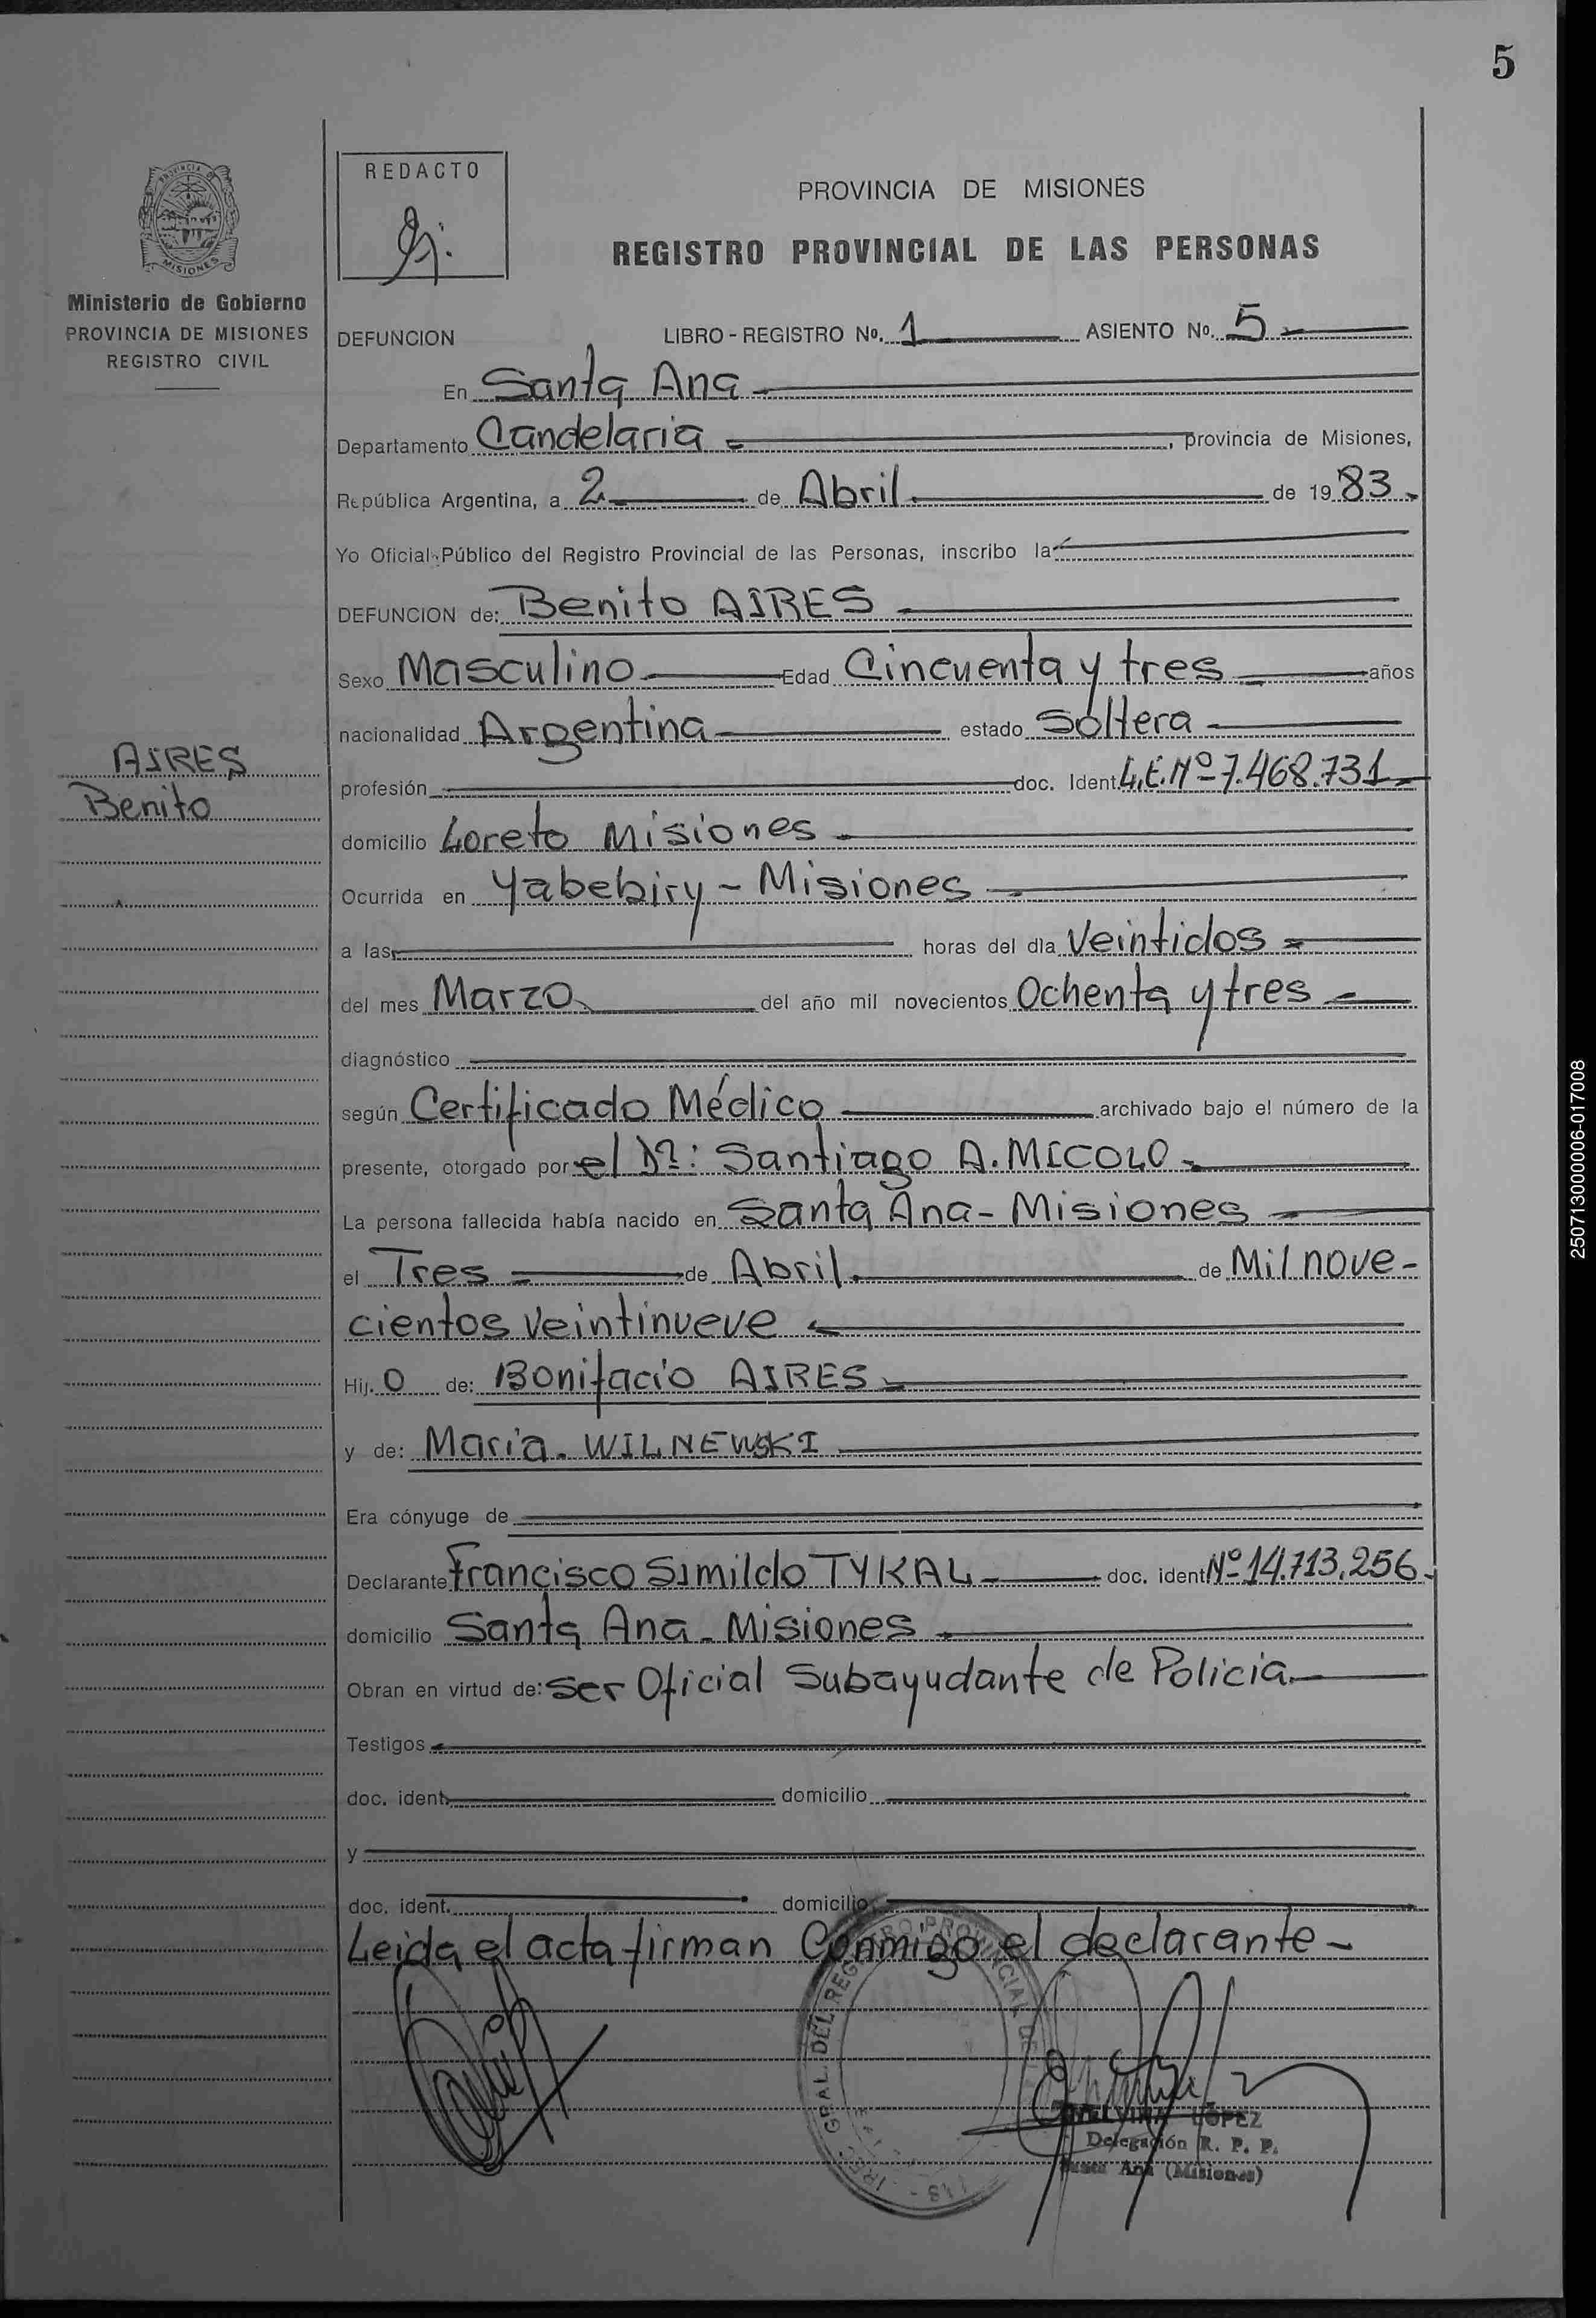 5
REDACTO
PROVINCIA DE MISIONES
REGISTRO PROVINCIAL DE LAS PERSONAS
PROVINCIA DE
MISIONES
Ministerio de Gobierno
PROVINCIA DE MISIONES
REGISTRO CIVIL
DEFUNCION LIBRO - REGISTRO Nº. 1 ASIENTO Nº. 5
En Santa Ana
Departamento Candelaria, provincia de Misiones,
República Argentina, a 2 de Abril de 1983
Yo Oficial Público del Registro Provincial de las Personas, inscribo la
DEFUNCION de: Benito AIRES
Sexo Masculino Edad Cincuenta y tres años
nacionalidad Argentina estado Soltera
AIRES
Benito
profesión doc. Ident. L.E. Nº 7.468.731
domicilio Loreto Misiones
Ocurrida en Yabebiry - Misiones
a las horas del día Veintidos
del mes Marzo del año mil novecientos Ochenta y tres
diagnóstico
según Certificado Médico archivado bajo el número de la
presente, otorgado por el Dr: Santiago A. MICOLO
La persona fallecida había nacido en Santa Ana - Misiones
el Tres de Abril de Mil nove-
cientos veintinueve
Hij. O de: Bonifacio AIRES
y de: María. WILNEWSKI
Era cónyuge de
Declarante Francisco Simildo TYKAL doc. ident Nº 14.713.256
domicilio Santa Ana - Misiones
Obran en virtud de: Ser Oficial Subayudante de Policia
Testigos
doc. ident. domicilio
y
doc. ident. domicilio
Leida el acta firman Conmigo el declarante -
GRAL. DEL REGISTRO PROVINCIAL DE
LOPEZ
Delegación R. P. P.
Santa Ana (Misiones)
250713000006-017008